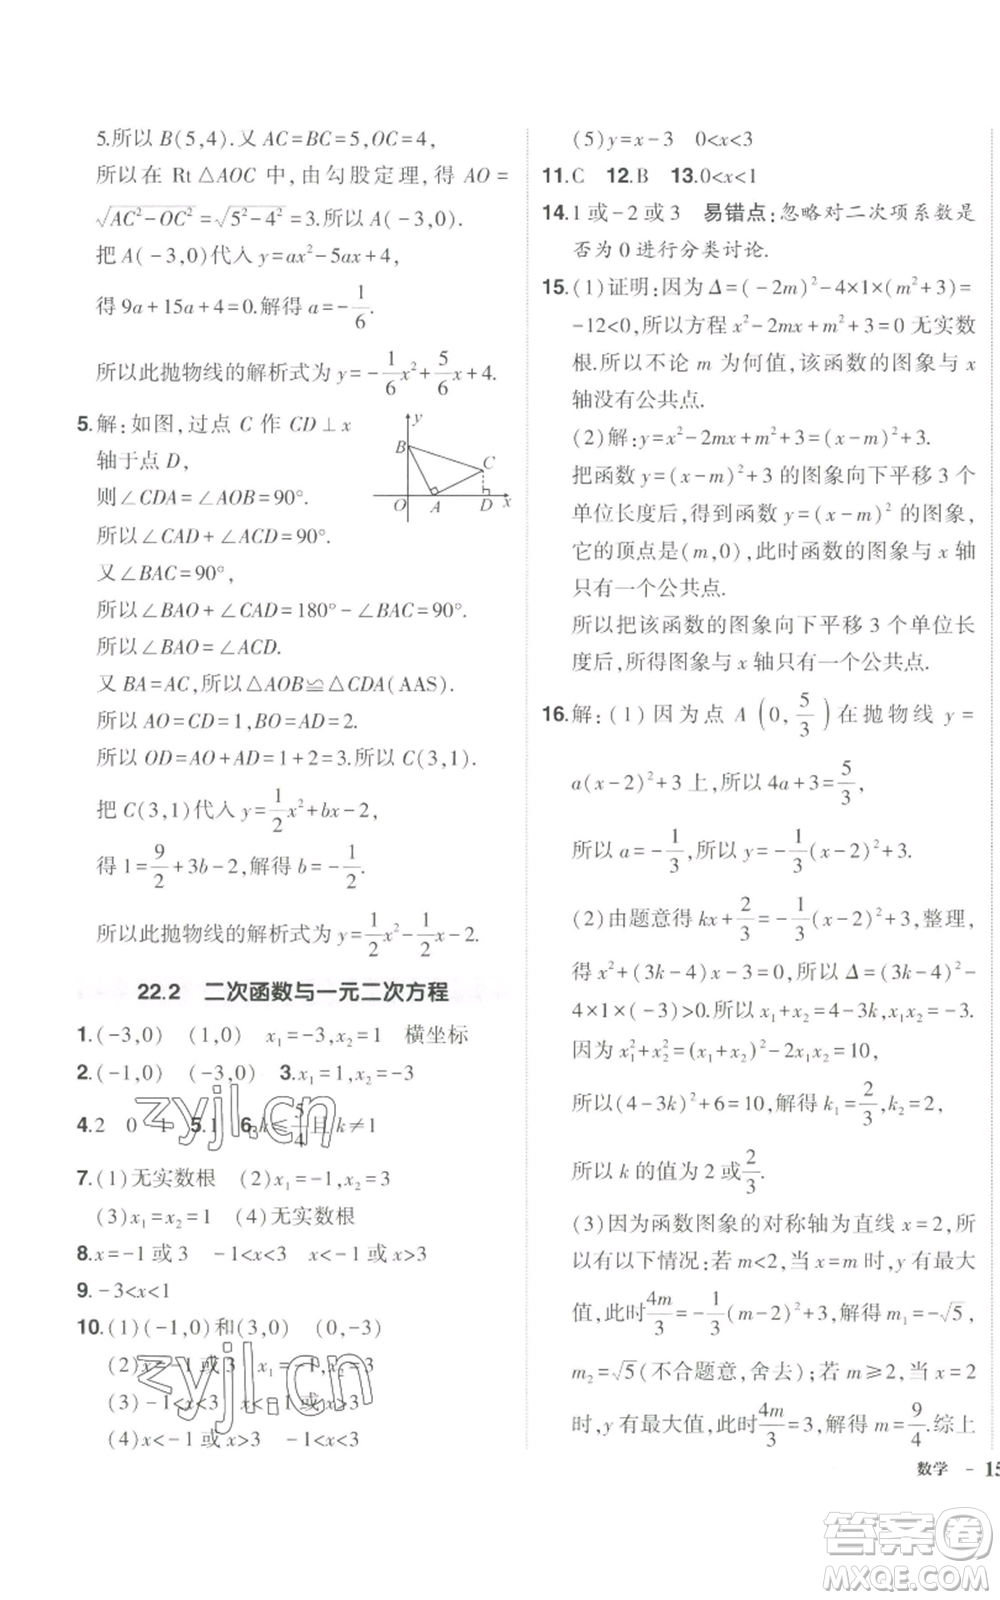 5.所以 B(5,4).又 AC=BC=5,OC=4,
所以在 Rt △AOC 中,由勾股定理,得 AO=
√(AC²-OC²)=√(5²-4²)=3.所以 A(-3,0).
把 A(-3,0)代入 y=ax²-5ax+4,
得 9a+15a+4=0.解得 a=-1/6.
所以此抛物线的解析式为 y=-1/6x²+5/6x+4.
5.解:如图,过点 C 作 CD⊥x
轴于点 D,
则∠CDA=∠AOB=90°.
所以∠CAD+∠ACD=90°.
又∠BAC=90°,
所以∠BAO+∠CAD=180°-∠BAC=90°.
所以∠BAO=∠ACD.
又 BA=AC,所以△AOB≌△CDA(AAS).
所以 AO=CD=1,BO=AD=2.
所以 OD=AO+AD=1+2=3.所以 C(3,1).
把 C(3,1)代入 y=1/2x²+bx-2,
得 1=9/2+3b-2,解得 b=-1/2.
所以此抛物线的解析式为 y=1/2x²-1/2x-2.
y
B
C
O
A
D
x
22.2 二次函数与一元二次方程
1.(-3,0) (1,0) x₁=-3,x₂=1 横坐标
2.(-1,0) (-3,0) 3.x₁=1,x₂=-3
4.2 0 1 5.1 6.k≤5/4且 k≠1
7.(1)无实数根 (2)x₁=-1,x₂=3
(3)x₁=x₂=1 (4)无实数根
8.x=-1 或 3 -1<x<3 x<-1 或 x>3
9.-3<x<1
10.(1)(-1,0)和(3,0) (0,-3)
(2)x=-1 或 3 x₁=-1,x₂=3
(3)-1<x<3 x<-1 或 x>3
(4)x<-1 或 x>3
(5)y=x-3 0<x<3
11.C 12.B 13.0<x<1
14.1 或-2 或 3 易错点:忽略对二次项系数是
否为 0 进行分类讨论.
15.(1)证明:因为 Δ=(-2m)²-4×1×(m²+3)=
-12<0,所以方程 x²-2mx+m²+3=0 无实数
根.所以不论 m 为何值,该函数的图象与 x
轴没有公共点.
(2)解:y=x²-2mx+m²+3=(x-m)²+3.
把函数 y=(x-m)²+3 的图象向下平移 3 个
单位长度后,得到函数 y=(x-m)² 的图象,
它的顶点是(m,0),此时函数的图象与 x 轴
只有一个公共点.
所以把该函数的图象向下平移 3 个单位长
度后,所得图象与 x 轴只有一个公共点.
16.解:(1)因为点 A(0,5/3)在抛物线 y=
a(x-2)²+3 上,所以 4a+3=5/3,
所以 a=-1/3,所以 y=-1/3(x-2)²+3.
(2)由题意得 kx+2/3=-1/3(x-2)²+3,整理,
得 x²+(3k-4)x-3=0,所以 Δ=(3k-4)²-
4×1×(-3)>0.所以 x₁+x₂=4-3k,x₁x₂=-3.
因为 x₁²+x₂²=(x₁+x₂)²-2x₁x₂=10,
所以(4-3k)²+6=10,解得 k₁=2/3,k₂=2,
所以 k 的值为 2 或2/3.
(3)因为函数图象的对称轴为直线 x=2,所
以有以下情况:若 m<2,当 x=m 时,y 有最大
值,此时4m/3=-1/3(m-2)²+3,解得 m₁=-√5,
m₂=√5(不合题意,舍去);若 m≥2,当 x=2
时,y 有最大值,此时4m/3=3,解得 m=9/4.综上
数学 - 15
zyjl.cn
zyjl.cn
答案卷
MXQE.COM